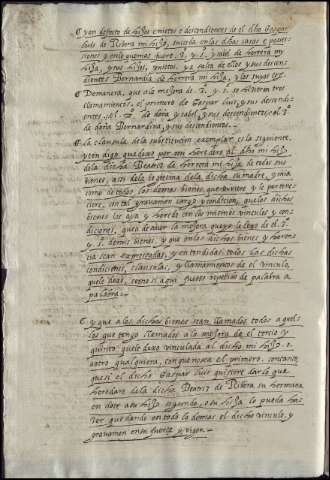 y en defecto de hijos nietos o descendientes de el dho Gaspar
luis de Ribera mi hijo, suceda en las dichas casas e posses-
siones y enlo que mas fuere .3. y .5. ysabel de herrera my
hija, y sus hijos, y nietos. ya falta de ellos y sus descen-
dientes Bernardina de herrera mi hija, y los suyos &c.
Demanera, que ala mejora de .3. y .5. se hizieron tres
llamamientos. el primero de Gaspar luis, y sus descendi-
entes. el .2.º de doña ysabel, y sus descendientes. el .3.º
de doña Bernardina, y sus descendientes.
La clausula dela substitucion exemplar es la siguiente.
y con dho gravamen por my heredero al dho mi hijo
dela dicha Beatriz de herrera mi hija de todos sus
bienes, assi dela legitima dela dicha su madre, y mia
como de todos los demas bienes, que tuviere y le pertene-
ciere, con tal gravamen cargo y condicion, que los dichos
bienes los aya y herede con los mismos vinculos y con-
diciones, que a de aver la mejora que yo le hago de el .3.
y .5. de mis bienes, y que enlos dichos bienes y heren-
cia sean expressadas, y entendidas todas las dichas
condiciones, clausulas, y llamamientos de el vinculo,
que le hago, como si aqui fuesse repetido de palabra a
palabra.
y que a los dichos bienes sean llamados todos aquel-
los que tengo llamados a la mejora de el tercio y
quinto, que le dexo vinculada al dicho mi hijo. o
a otro qualquiera, con que no sea el primero. contanto
que si el dicho Gaspar Luis quisiere dar lo que
heredare dela dicha Beatriz de Ribera su hermana
en dote a su hija segunda, o su hija, lo pueda ha-
zer quedando en todo lo demas el dicho vinculo, y
gravamen en su fuerça y vigor.